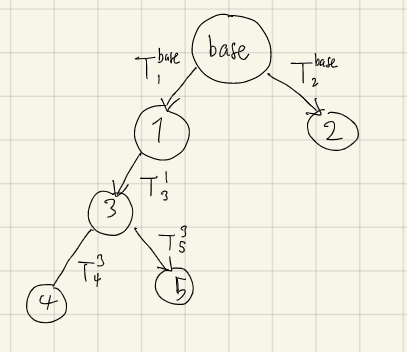 base
T₁ᵇᵃˢᵉ
T₂ᵇᵃˢᵉ
1
2
T₃¹
3
T₅³
T₄³
4
5